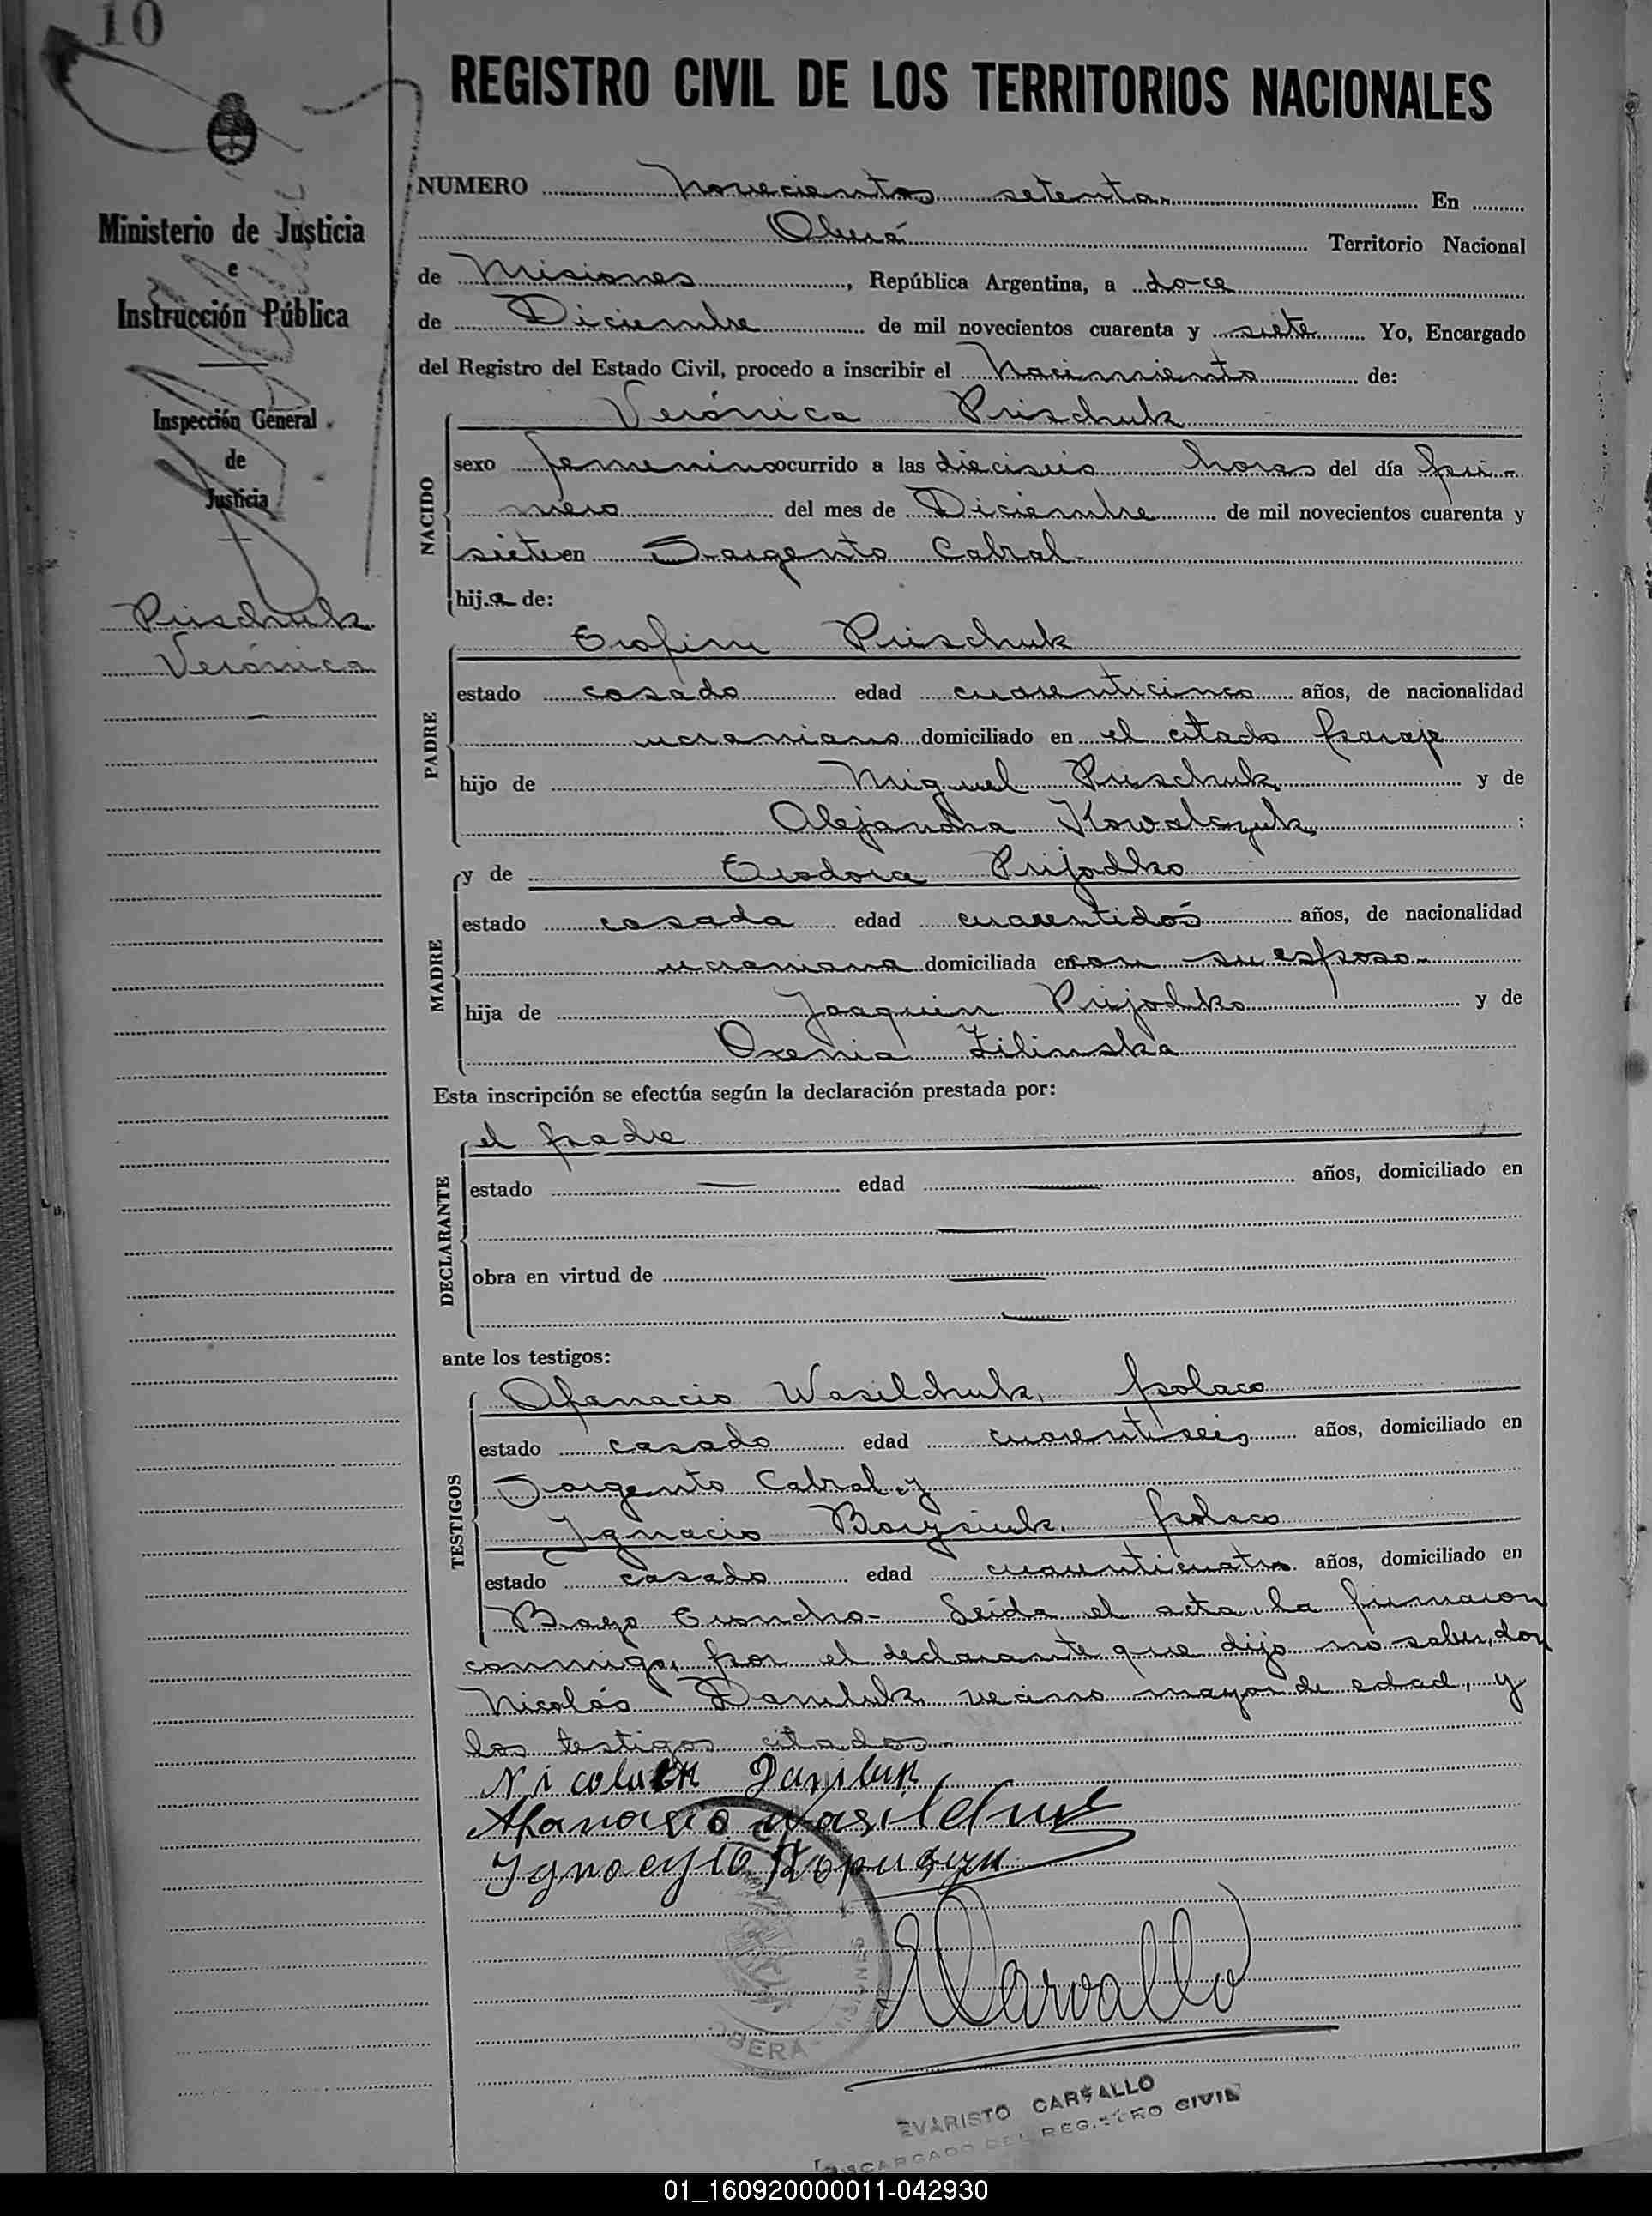 10
REGISTRO CIVIL DE LOS TERRITORIOS NACIONALES
Ministerio de Justicia
e
Instrucción Pública
Inspección General
de
Justicia
Prischuk
Verónica
NUMERO novecientos setenta En
Oberá Territorio Nacional
de Misiones, República Argentina, a doce
de Diciembre de mil novecientos cuarenta y siete Yo, Encargado
del Registro del Estado Civil, procedo a inscribir el Nacimiento de:
Verónica Prischuk
NACIDO
sexo femenino ocurrido a las dieciseis horas del día pri-
mero del mes de Diciembre de mil novecientos cuarenta y
siete en Sargento Cabral-
hija de:
Erofim Prischuk
PADRE
estado casado edad cuarenticinco años, de nacionalidad
ucraniano domiciliado en el citado paraje
hijo de Miguel Prischuk y de
Alejandra Kowalczuk :
y de Eudora Prijodko
MADRE
estado casada edad cuarentidós años, de nacionalidad
ucraniana domiciliada en con su esposo-
hija de Joaquin Prijodko y de
Oxenia Zilinska
Esta inscripción se efectúa según la declaración prestada por:
el padre
DECLARANTE
estado — edad — años, domiciliado en
—
obra en virtud de —
—
ante los testigos:
Afanacio Wasilchuk, polaco
TESTIGOS
estado casado edad cuarentiseis años, domiciliado en
Sargento Cabral y
Ygnacio Borysiuk, polaco
estado casado edad cuarenticuatro años, domiciliado en
Bayo Troncho- Leida el acta, la firmaron
conmigo, por el declarante que dijo no saber, don
Nicolás Daniluk vecino mayor de edad, y
los testigos citados-
Afanacio Wasilchuk
Ygnacyio
ECarvallo
OBERÁ MISIONES
EVARISTO CARVALLO
ENCARGADO DEL REGISTRO CIVIL
01_160920000011-042930